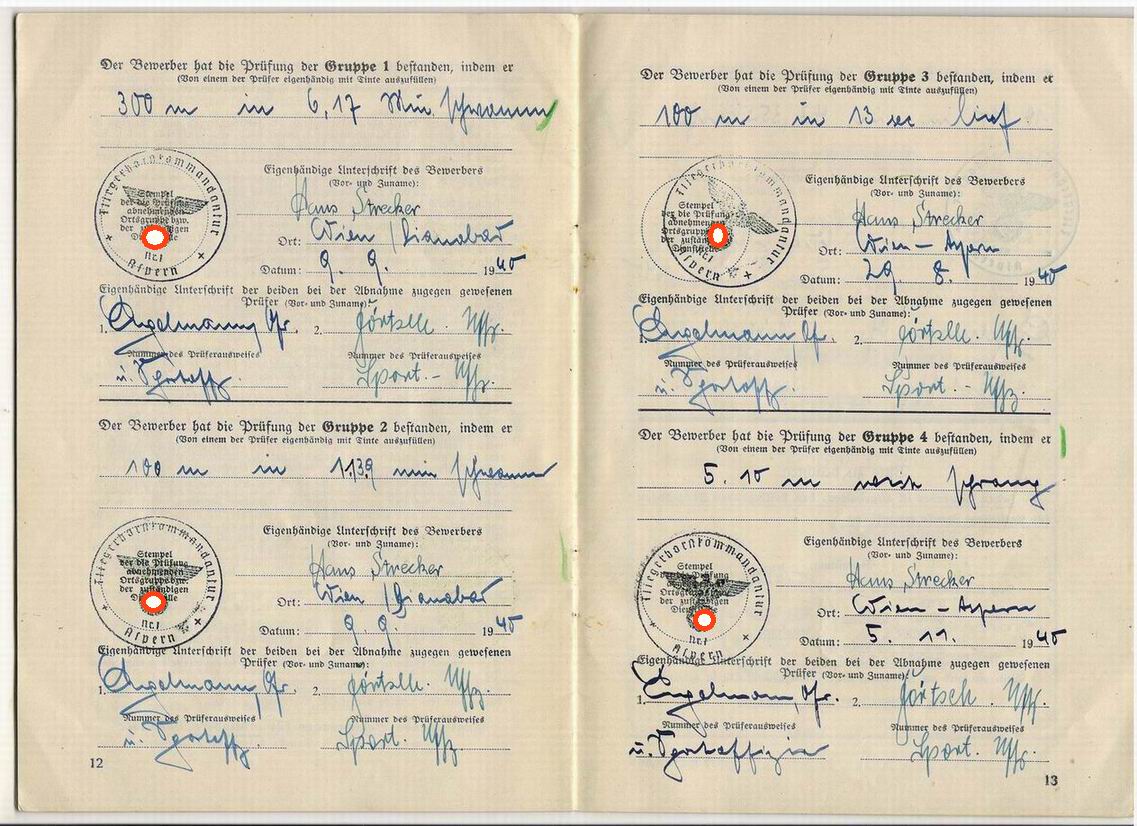 Der Bewerber hat die Prüfung der Gruppe 1 bestanden, indem er
(Von einem der Prüfer eigenhändig mit Tinte auszufüllen)
300 m in 6,17 Min schwamm
Fliegerhorstkommandantur
Aspern
Stempel
der die Prüfung
abnehmenden
Ortsgruppe bzw.
der zuständigen
Nr. 1
Eigenhändige Unterschrift des Bewerbers
(Vor- und Zuname):
Hans Strecker
Ort: Wien / Dianabad
Datum: 9. 9. 1940
Eigenhändige Unterschriften der beiden bei der Abnahme zugegen gewesenen
Prüfer (Vor- und Zuname):
1. Engelmann, 2. Uffz.
Nummer des Prüferausweises Nummer des Prüferausweises
u. Sport. - Uffz.
Der Bewerber hat die Prüfung der Gruppe 2 bestanden, indem er
(Von einem der Prüfer eigenhändig mit Tinte auszufüllen)
100 m in 1,139 min schwamm
Fliegerhorstkommandantur
Aspern
Stempel
der die Prüfung
abnehmenden
Ortsgruppe bzw.
der zuständigen
Nr. 1
Eigenhändige Unterschrift des Bewerbers
(Vor- und Zuname):
Hans Strecker
Ort: Wien / Dianabad
Datum: 9. 9. 1940
Eigenhändige Unterschriften der beiden bei der Abnahme zugegen gewesenen
Prüfer (Vor- und Zuname):
1. Engelmann, 2. Uffz.
Nummer des Prüferausweises Nummer des Prüferausweises
u. Sport. Uffz.
12
Der Bewerber hat die Prüfung der Gruppe 3 bestanden, indem er
(Von einem der Prüfer eigenhändig mit Tinte auszufüllen)
100 m in 13 sec lief
Fliegerhorstkommandantur
Aspern
Stempel
der die Prüfung
abnehmenden
Ortsgruppe
der
Nr. 1
Eigenhändige Unterschrift des Bewerbers
(Vor- und Zuname):
Hans Strecker
Ort: Wien - Aspern
Datum: 29. 8. 1940
Eigenhändige Unterschriften der beiden bei der Abnahme zugegen gewesenen
Prüfer (Vor- und Zuname):
1. Engelmann 2. Uffz.
Nummer des Prüferausweises Nummer des Prüferausweises
u. Sport. - Uffz.
Der Bewerber hat die Prüfung der Gruppe 4 bestanden, indem er
(Von einem der Prüfer eigenhändig mit Tinte auszufüllen)
5.10 m weit sprang
Fliegerhorstkommandantur
Aspern
Stempel
der die Prüfung
abnehmenden
der zuständigen
Nr. 1
Eigenhändige Unterschrift des Bewerbers
(Vor- und Zuname):
Hans Strecker
Ort: Wien - Aspern
Datum: 5. 11. 1940
Eigenhändige Unterschriften der beiden bei der Abnahme zugegen gewesenen
Prüfer (Vor- und Zuname):
1. Engelmann, 2. Uffz.
Nummer des Prüferausweises Nummer des Prüferausweises
u. Sportoffizier Sport. Uffz.
13